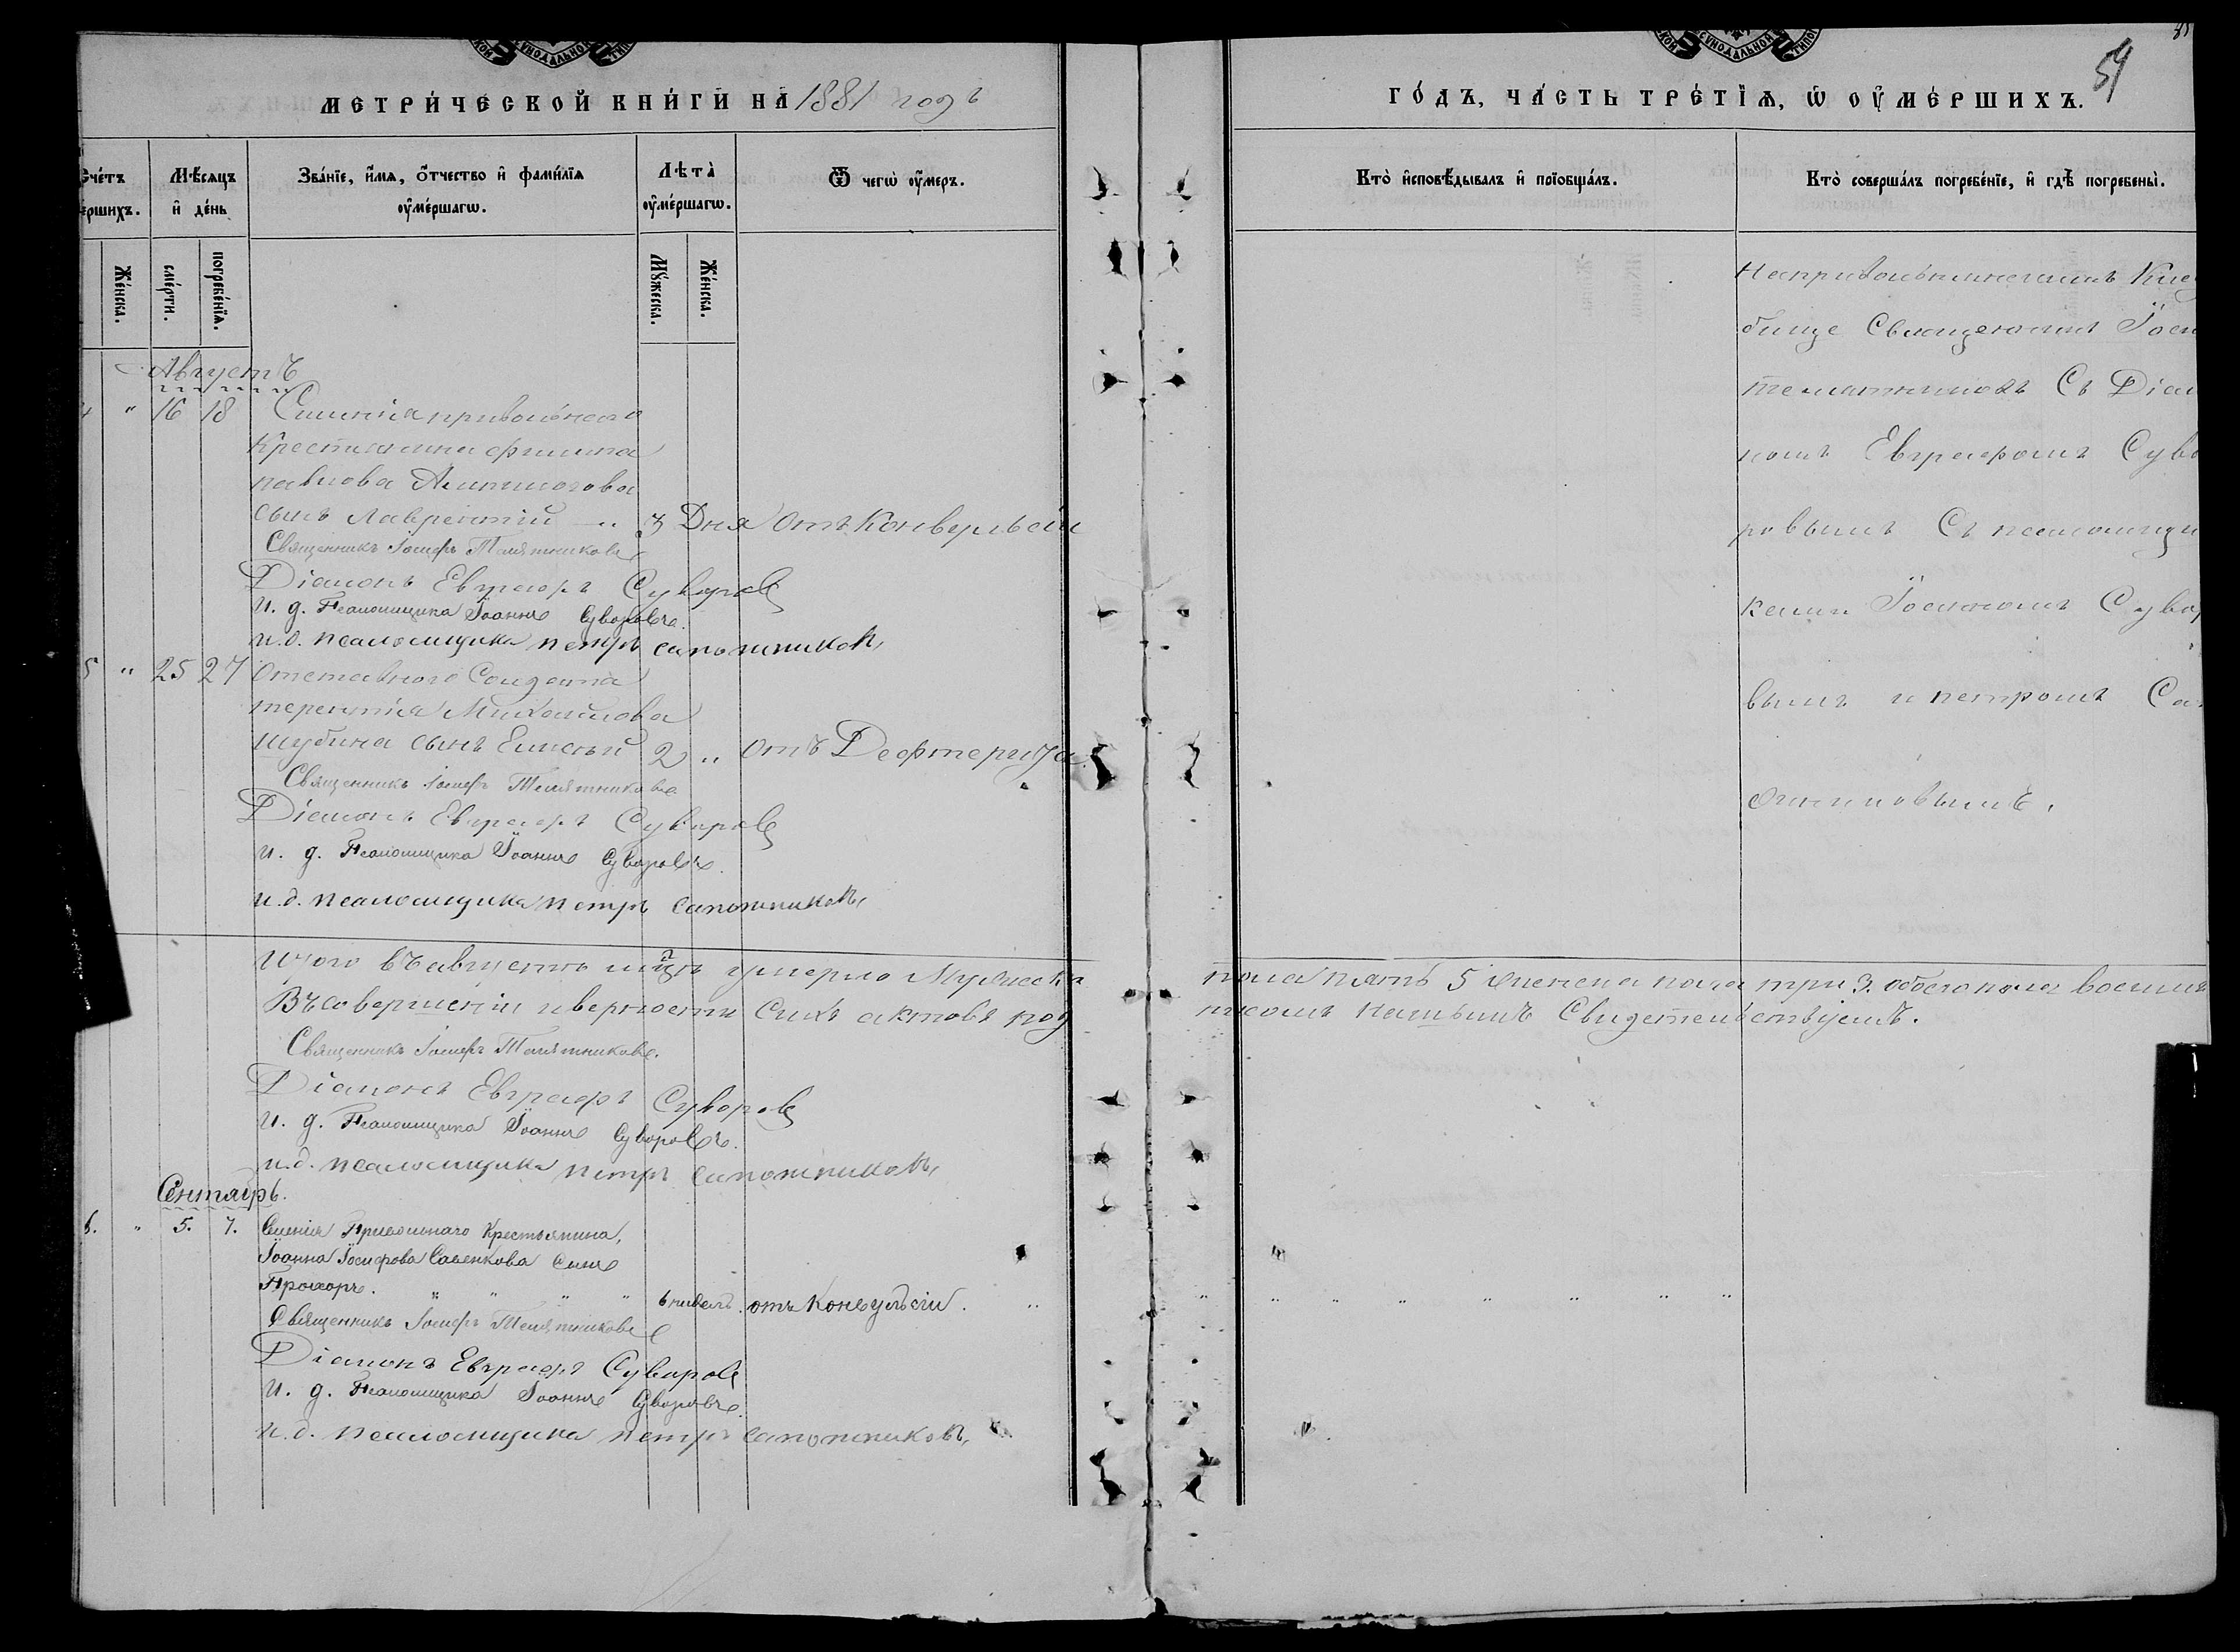 МЕТРИ́ЧЕСКОЙ КНИ́ГИ НА 1881 годъ
Сче́тъ ме́ршихъ.
Мѣ́сяцъ и де́нь
Зва́нїе, и́мя, о́тчество и фами́лїя оуме́ршагѡ.
Лѣта̀ оуме́ршагѡ.
Ѿ чегѡ̀ оу́меръ.
Же́нска.
сме́рти.
погребе́нїя.
Му́жеска.
Же́нска.
Августъ
4 " 16 18 Селенія привольнаго
Крестьянина Филипа
павлова
сынъ Лаврентій " 3 Дня Отъ Конвульсіи
Священникъ Іосифъ Телятниковъ
Діаконъ Евграфъ Суворовъ
И. д. Псаломщика Іоаннъ Суворовъ.
и.д. псаломщика петръ сапожниковъ,
5 " 25 27 Отставного Солдата
терентія Михайлова
шубина сынъ Елисей 2 " Отъ Дефтерита
Священникъ Іосифъ Телятниковъ
Діаконъ Евграфъ Суворовъ
и. д. Псаломщика Іоаннъ Суворовъ.
и.д. псаломщика петръ сапожниковъ,
Итого въ августѣ мцѣ умерло Мужеска
Въ совершеніи и верности Сихъ актовъ под
Священникъ Іосифъ Телятниковъ.
Діаконъ Евграфъ Суворовъ
и. д. Псаломщика Іоаннъ Суворовъ.
и.д. псаломщика петръ сапожниковъ,
Сентябрь.
6. " 5. 7. Селенія Привольнаго Крестьянина,
Іоанна Іосифова Савенкова Сынъ
Прохоръ. " " " " 6 недель. отъ Конвульсіи. "
Священникъ Іосифъ Телятниковъ
Діаконъ Евграфъ Суворовъ
И. д. Псаломщика Іоаннъ Суворовъ.
и.д. псаломщика петръ сапожниковъ,
ГО́ДЪ, ЧА́СТЬ ТРЕ́ТЇЯ, Ѡ ОУМЕ́РШИХЪ.
54
Кто̀ исповѣ́дывалъ и прїобща́лъ.
Кто̀ соверша́лъ погребе́нїе, и гдѣ̀ погребены̀.
На привольненскомъ Клад
бище Священникъ Іоси
Телятниковъ Съ Діак
номъ Евграфомъ Суво
ровымъ Съ псаломщи
ками Іоанномъ Сувор
вымъ и петромъ Са
ожниковымъ.
пола пять 5 женска пола три 3. обоего пола восемь
писомъ нашымъ Свидетельствуемъ.
" " " " " " " "